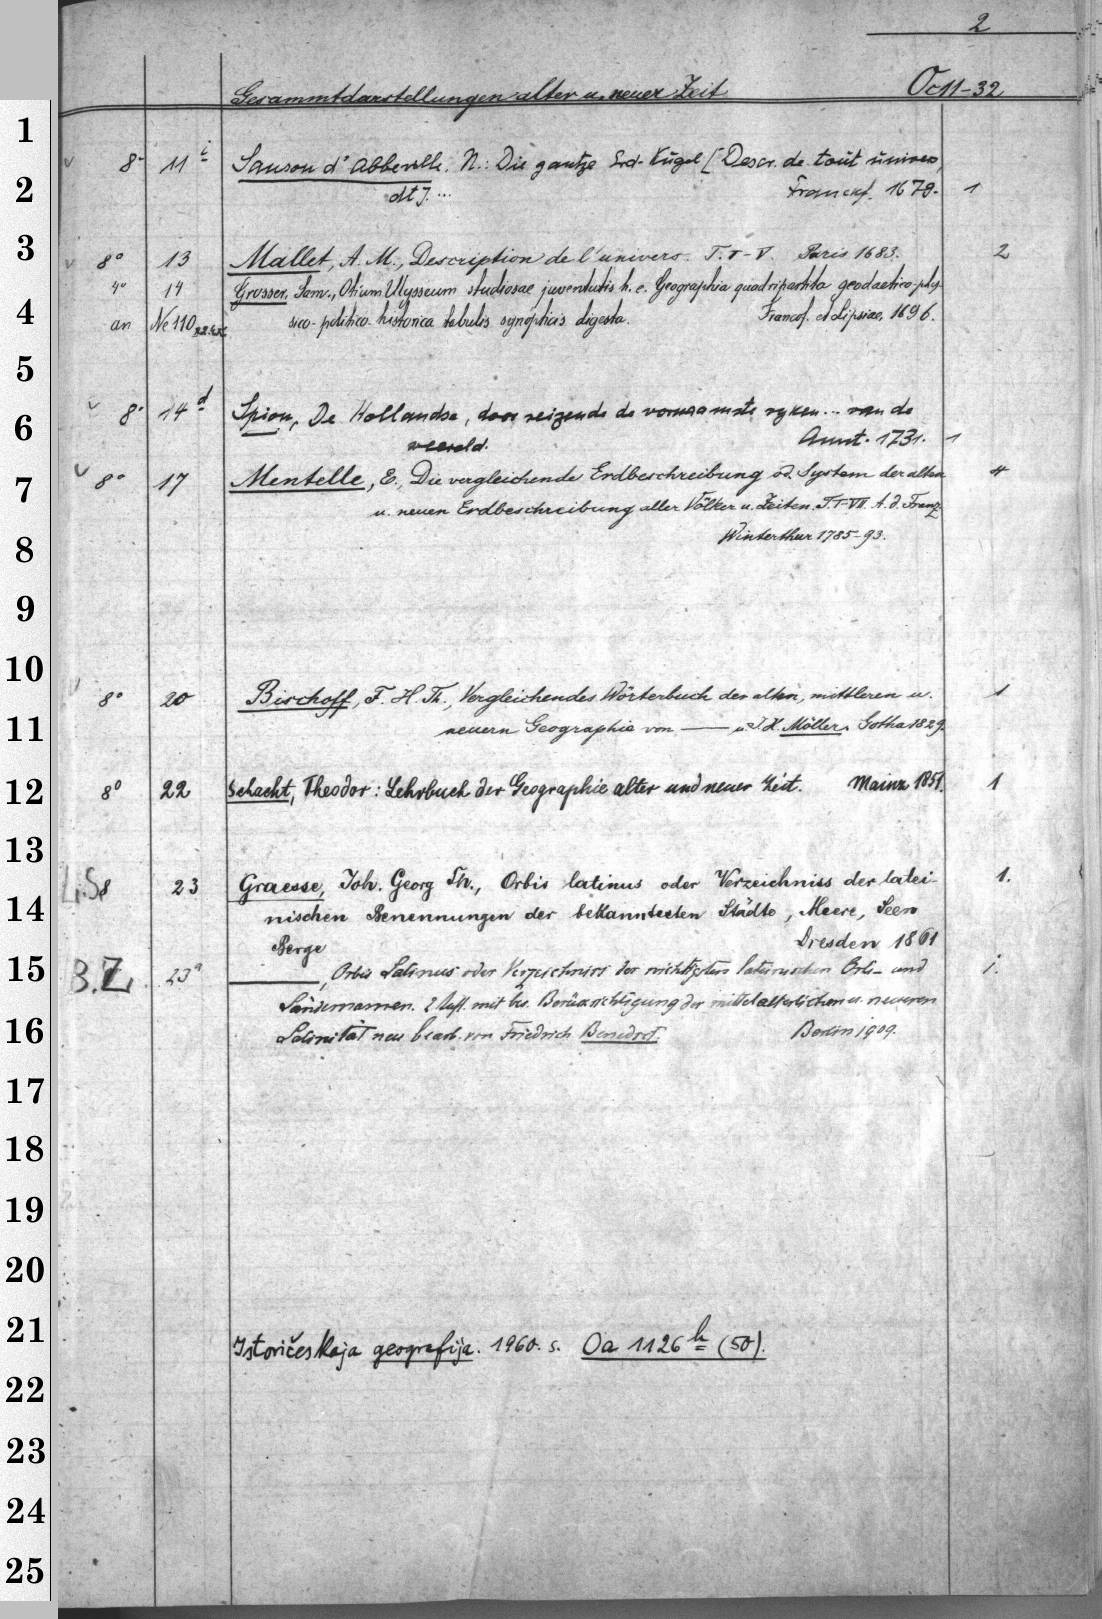 2
Gesammtdarstellungen alter u. neuer Zeit Oc 11-32
1
8° 11 i Sanson d'Abbeville. N.: Die gantze Erd-Kugel [Descr. de tout univers,
2
dt]. ... Franckf. 1679. 1
3
8° 13 Mallet, A. M., Description de l'univers. T. I-V. Paris 1683. 2
4° 14 Grosser, Sam., Otium Ulysseum studiosae juventutis h. e. Geographia quadripartita geodaetico-phy-
4
an Ne 110 sico-politico-historica tabulis synopticis digesta. Francof. et Lipsiae, 1696.
5
8° 14 d Spion, De Hollandse, door reizende de vornaamste ryken... van de
6
weereld. Amst. 1731. 1
7
8° 17 Mentelle, E., Die vergleichende Erdbeschreibung od. System der alten 4
u. neuen Erdbeschreibung aller Völker u. Zeiten. T. I-VII. A. d. Franz.
8
Winterthur 1785-93.
9
10
8° 20 Bischoff, F. H. Th., Vergleichendes Wörterbuch der alten, mittleren u. 1
11
neuern Geographie von —— u. J. H. Möller. Gotha 1829.
12
8° 22 Schacht, Theodor: Lehrbuch der Geographie alter und neuer Zeit. Mainz 1851. 1
13
L.S. 8 23 Graesse, Joh. Georg Th., Orbis latinus oder Verzeichniss der latei- 1.
14
nischen Benennungen der bekanntesten Städte, Meere, Seen
Berge Dresden 1861
15
B.Z. 23a ——, Orbis Latinus oder Verzeichniss der wichtigsten lateinischen Orts- und 1.
Ländernamen. 2 Aufl. mit bes. Berücksichtigung der mittelalterlichen u. neueren
16
Latinität neu bearb. von Friedrich Benedict. Berlin 1909.
17
18
19
20
21
Istoričeskaja geografija. 1960. s. Oa 1126 h (50).
22
23
24
25